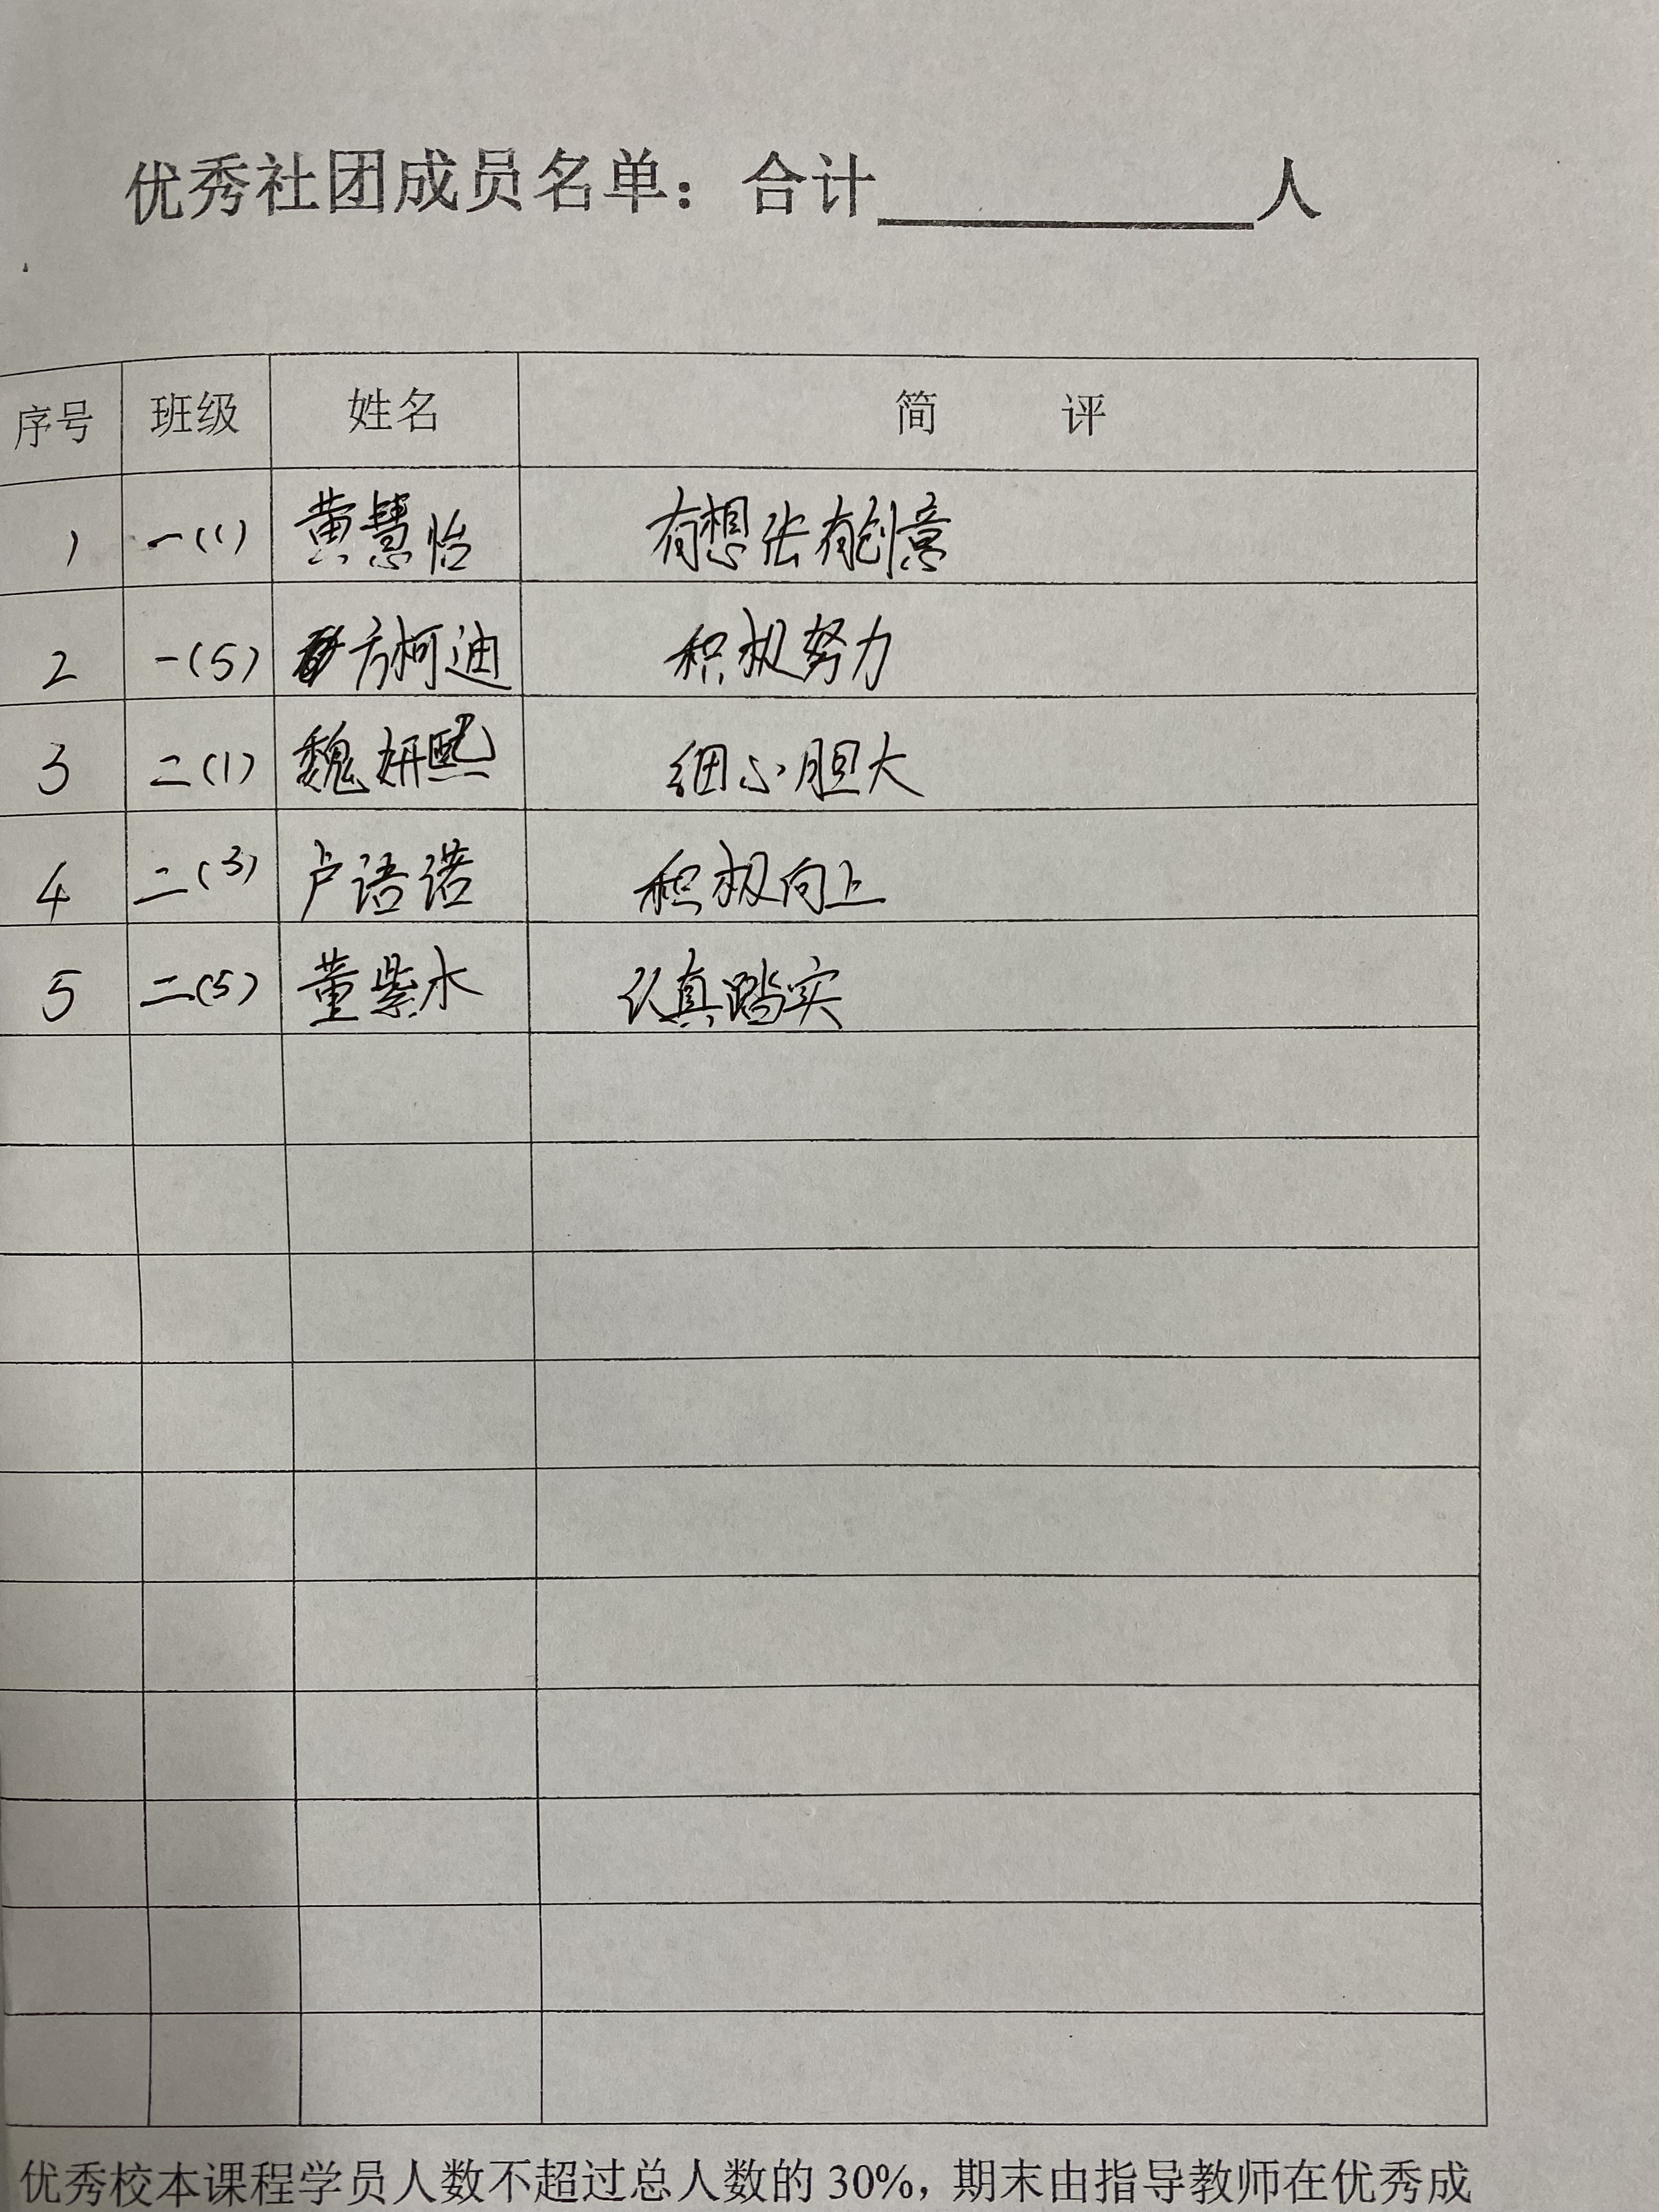 优秀社团成员名单：合计__________人
序号 班级 姓名 简 评
1 一(1) 黄慧怡 有想法有创意
2 一(5) 方柯迪 积极努力
3 二(1) 魏妍熙 细心胆大
4 二(3) 卢语诺 积极向上
5 二(5) 董紫水 认真踏实
优秀校本课程学员人数不超过总人数的 30%，期末由指导教师在优秀成